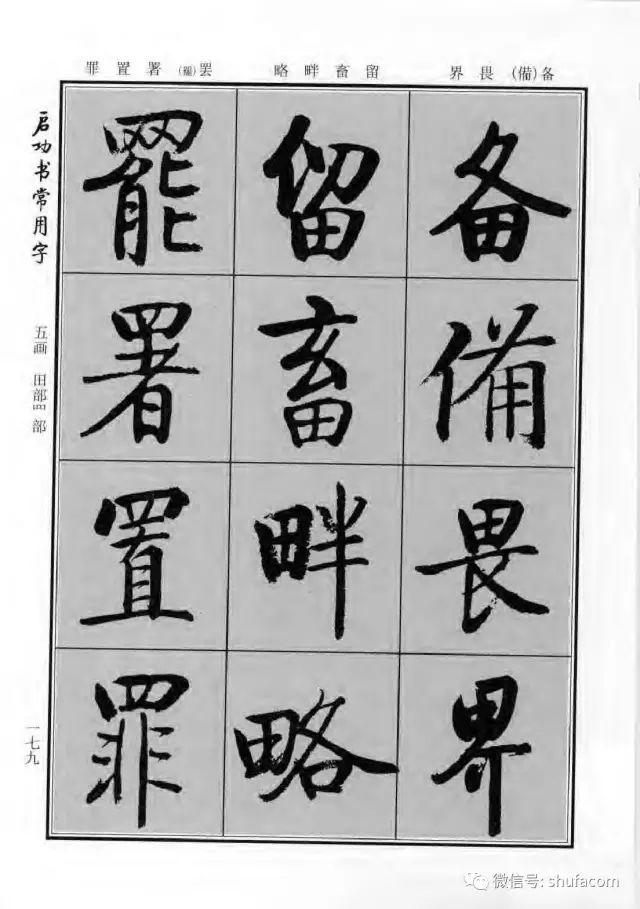 备(備)畏界
留畜畔略
罢(罷)署置罪
备
備
畏
界
留
畜
畔
略
罷
署
置
罪
启功书常用字
五画 田部 罒部
一七九
微信号: shufacom